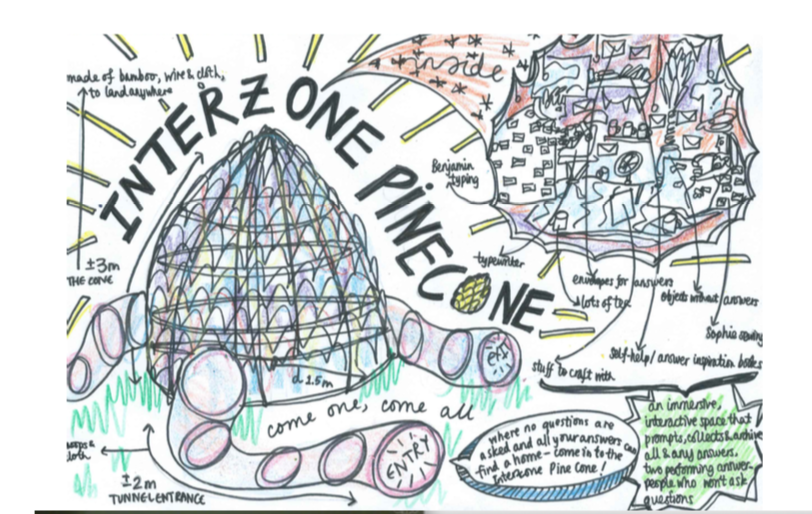 made of bamboo, wire & cloth,
to land anywhere
INTERZONE PINECONE
inside
Benjamin
typing
±3m
THE CONE
typewriter
envelopes for answers
lots of tea
objects without answers
Sophie
self-help/ answer inspiration books
stuff to craft with
d 1.5m
come one, come all
ENTRY
cloth
±2m
TUNNEL ENTRANCE
where no questions are
asked and all your answers can
find a home - come in to the
Interzone Pine Cone!
an immersive,
interactive space that
prompts, collects & archive
all & any answers.
two performing answer-
people who won't ask
questions